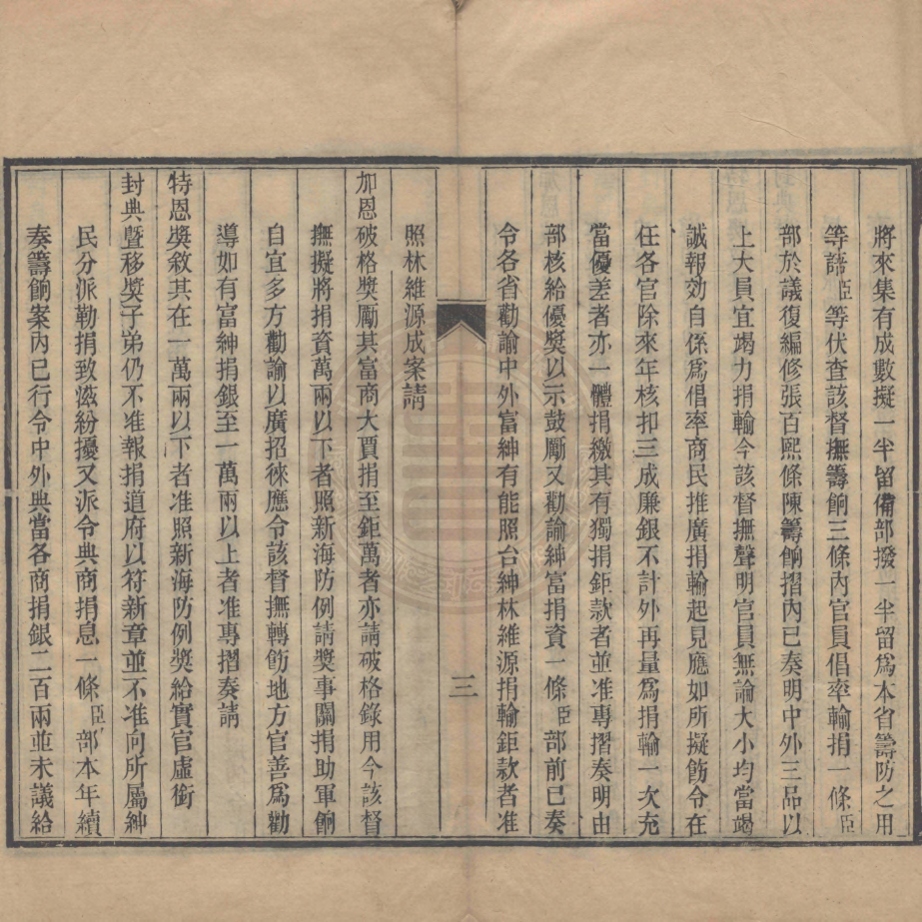 將來集有成數擬一半留備部撥一半留爲本省籌防之用
等語臣等伏查該督撫籌餉三條內官員倡率輸捐一條臣
部於議復編修張百熙條陳籌餉摺內已奏明中外三品以
上大員宜竭力捐輸今該督撫聲明官員無論大小均當竭
誠報效自係爲倡率商民推廣捐輸起見應如所擬飭令在
任各官除來年核扣三成廉銀不計外再量爲捐輸一次充
當優差者亦一體捐繳其有獨捐鉅款者並准專摺奏明由
部核給優獎以示鼓勵又勸諭紳富捐資一條臣部前已奏
令各省勸諭中外富紳有能照台紳林維源捐輸鉅款者准
三
照林維源成案請
加恩破格獎勵其富商大賈捐至鉅萬者亦請破格錄用今該督
撫擬將捐資萬兩以下者照新海防例請獎事關捐助軍餉
自宜多方勸諭以廣招徠應令該督撫轉飭地方官善爲勸
導如有富紳捐銀至一萬兩以上者准專摺奏請
特恩獎敘其在一萬兩以下者准照新海防例獎給實官虛銜
封典暨移獎子弟仍不准報捐道府以符新章並不准向所屬紳
民分派勒捐致滋紛擾又派令典商捐息一條臣部本年續
奏籌餉案內已行令中外典當各商捐銀二百兩並未議給